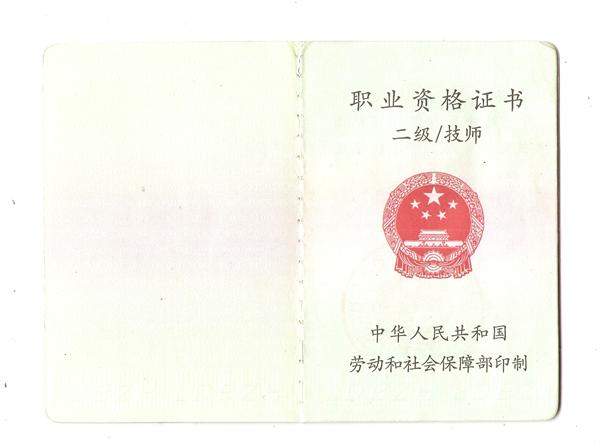 职业资格证书
二级/技师
中华人民共和国
劳动和社会保障部印制